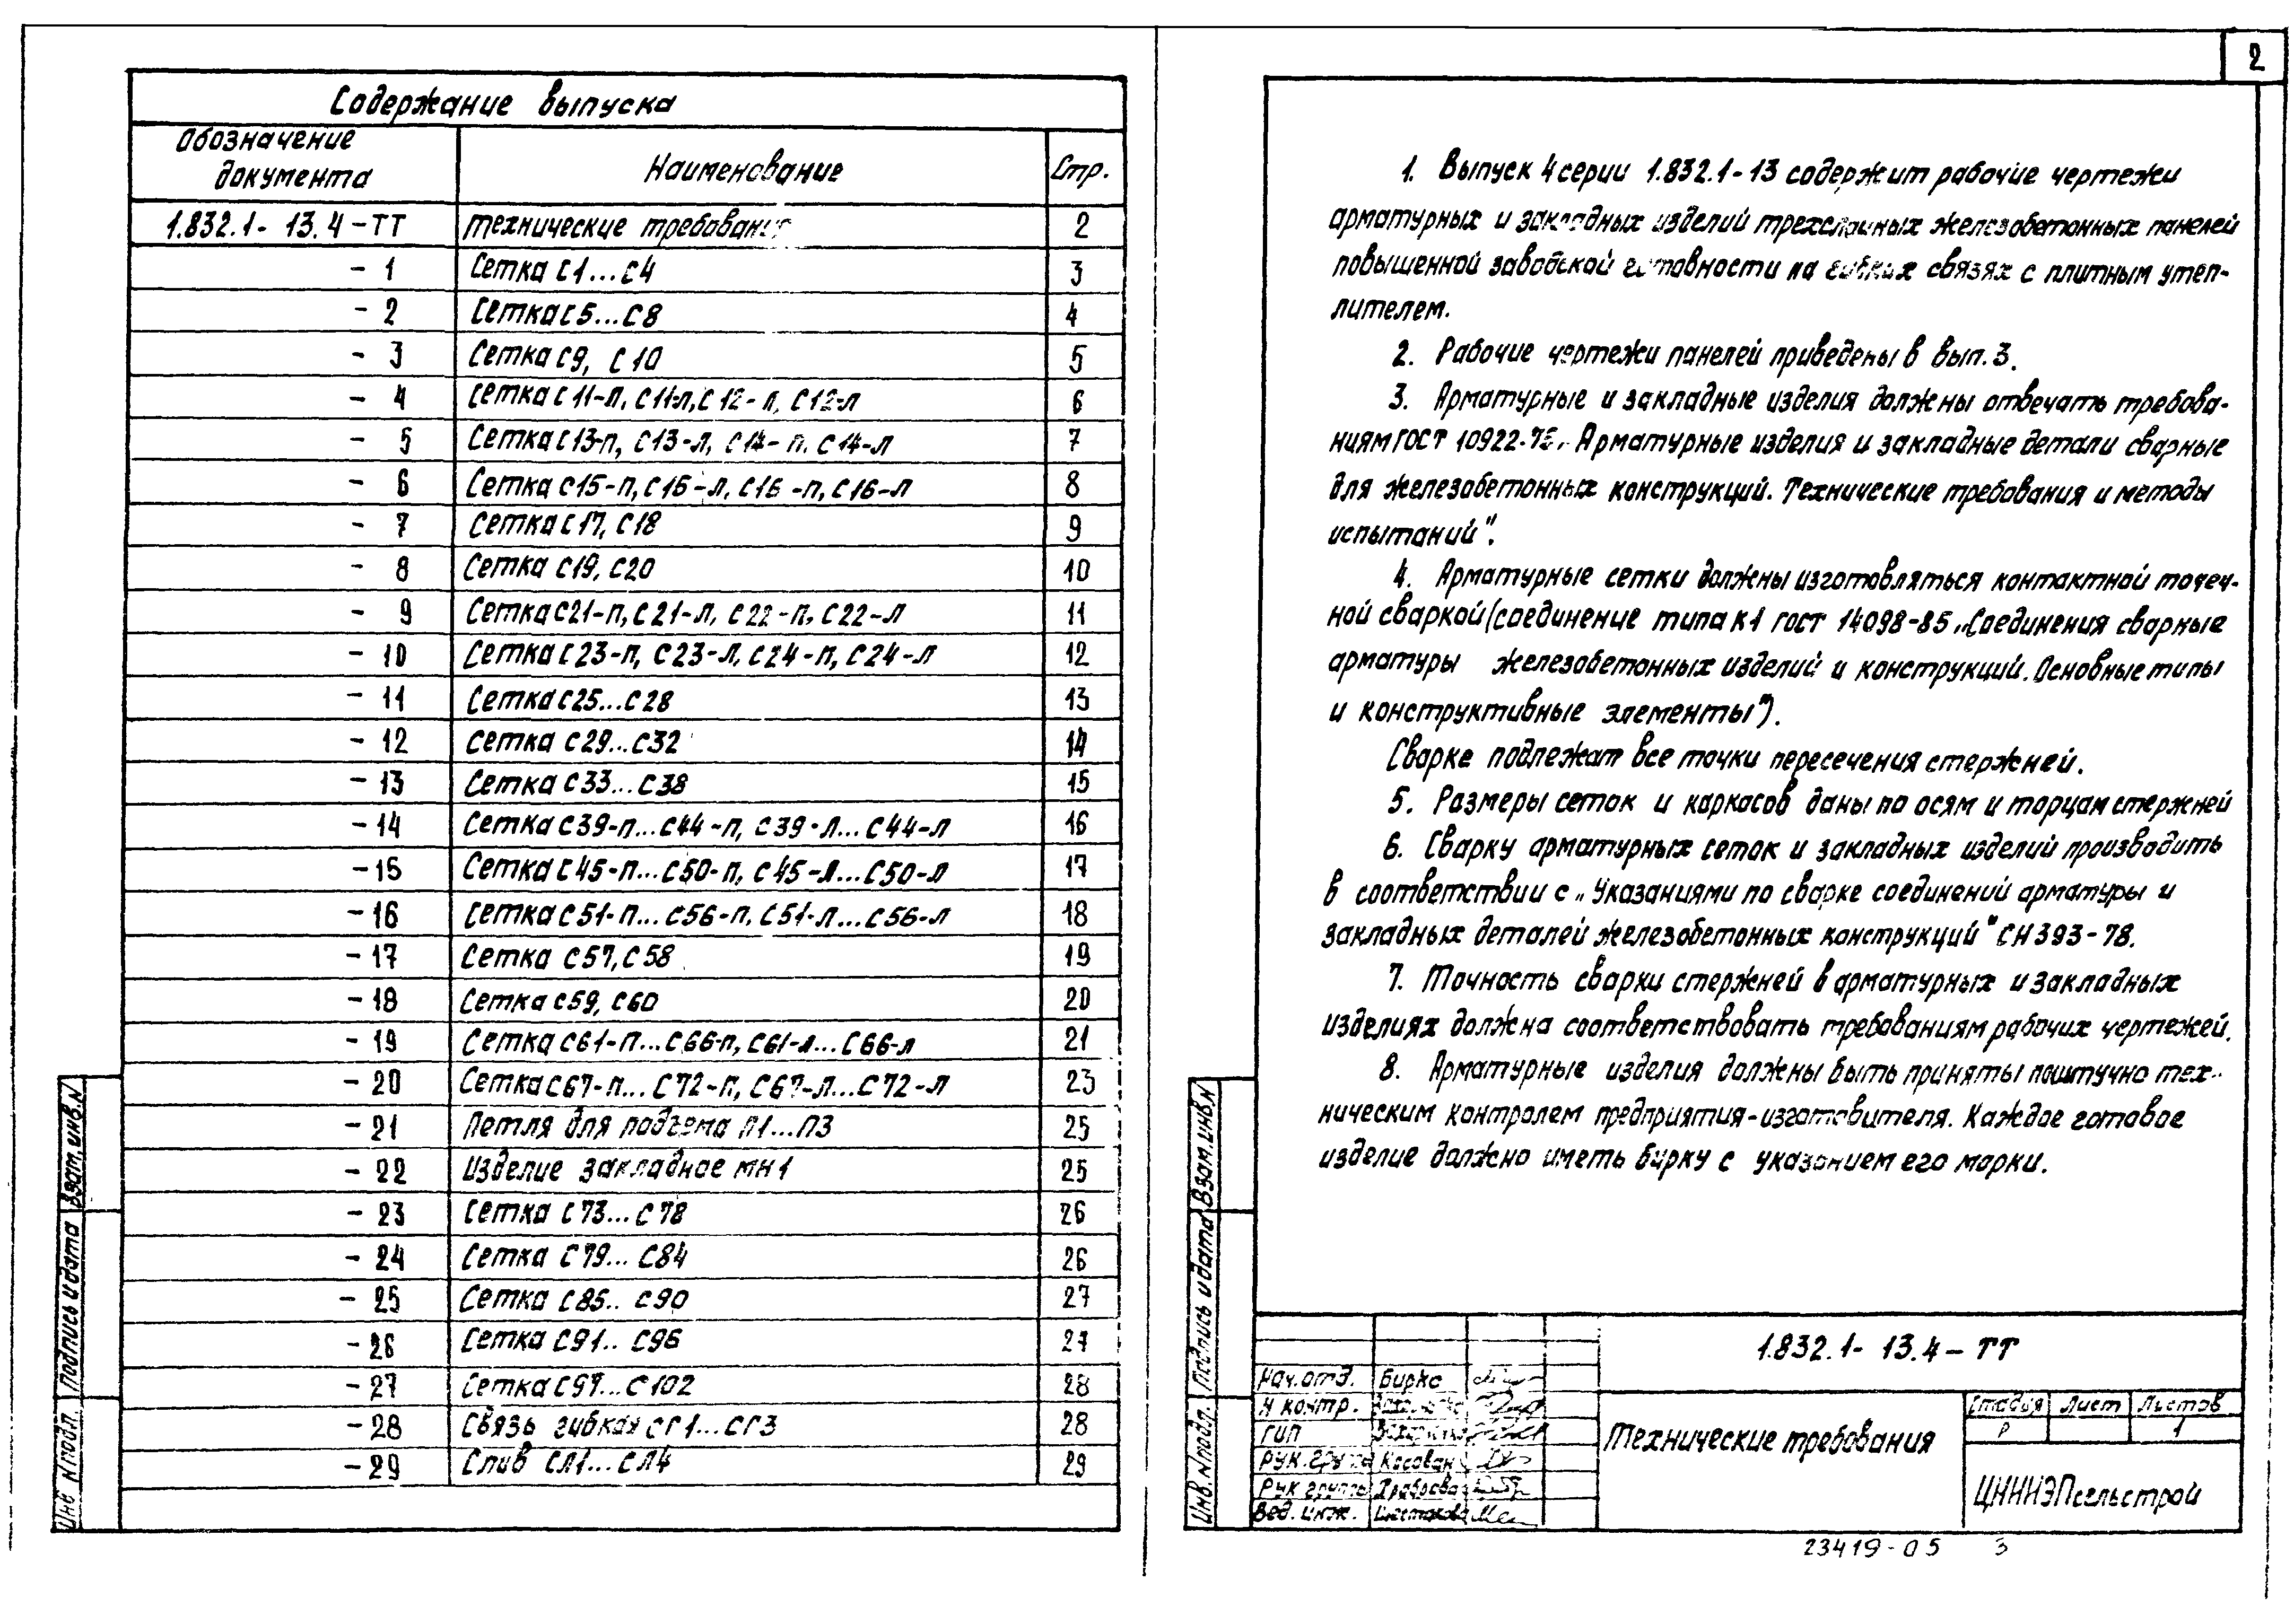 Содержание выпуска
Обозначение документа Наименование Стр.
1.832.1-13.4-ТТ Технические требования 2
-1 Сетка С1...С4 3
-2 Сетка С5...С8 4
-3 Сетка С9, С10 5
-4 Сетка С11-п, С11-л, С12-п, С12-л 6
-5 Сетка С13-п, С13-л, С14-п. С14-л 7
-6 Сетка С15-п, С15-л, С16-п, С16-л 8
-7 Сетка С17, С18 9
-8 Сетка С19, С20 10
-9 Сетка С21-п, С21-л, С22-п, С22-л 11
-10 Сетка С23-п, С23-л, С24-п, С24-л 12
-11 Сетка С25...С28 13
-12 Сетка С29...С32 14
-13 Сетка С33...С38 15
-14 Сетка С39-п...С44-п, С39-л...С44-л 16
-15 Сетка С45-п...С50-п, С45-л...С50-л 17
-16 Сетка С51-п...С56-п, С51-л...С56-л 18
-17 Сетка С57, С58 19
-18 Сетка С59, С60 20
-19 Сетка С61-п...С66-п, С61-л...С66-л 21
-20 Сетка С67-п...С72-п, С67-л...С72-л 23
-21 Петля для подъема П1...П3 25
-22 Изделие закладное МН1 25
-23 Сетка С73...С78 26
-24 Сетка С79...С84 26
-25 Сетка С85..С90 27
-26 Сетка С91..С96 27
-27 Сетка С97...С102 28
-28 Связь гибкая СГ1...СГ3 28
-29 Слив СЛ1...СЛ4 29
Инв N подл. Подпись и дата Взам. инв. N
2
1. Выпуск 4 серии 1.832.1-13 содержит рабочие чертежи
арматурных и закладных изделий трехслойных железобетонных панелей
повышенной заводской готовности на гибких связях с плитным утеп-
лителем.
2. Рабочие чертежи панелей приведены в вып. 3.
3. Арматурные и закладные изделия должны отвечать требова-
ниям ГОСТ 10922-75 „Арматурные изделия и закладные детали сварные
для железобетонных конструкций. Технические требования и методы
испытаний".
4. Арматурные сетки должны изготовляться контактной точеч-
ной сваркой (соединение типа К1 ГОСТ 14098-85 „Соединения сварные
арматуры железобетонных изделий и конструкций. Основные типы
и конструктивные элементы").
Сварке подлежат все точки пересечения стержней.
5. Размеры сеток и каркасов даны по осям и торцам стержней
6. Сварку арматурных сеток и закладных изделий производить
в соответствии с „Указаниями по сварке соединений арматуры и
закладных деталей железобетонных конструкций" СН 393-78.
7. Точность сварки стержней в арматурных и закладных
изделиях должна соответствовать требованиям рабочих чертежей.
8. Арматурные изделия должны быть приняты поштучно тех-
ническим контролем предприятия-изготовителя. Каждое готовое
изделие должно иметь бирку с указанием его марки.
Инв. N подл. Подпись и дата Взам. инв. N
1.832.1-13.4-ТТ
Нач. отд. Бирко
Н контр.
ГИП
Рук. группы Косован
Рук группы
Вед. инж.
Технические требования
Стадия Лист Листов
Р 1
ЦНИИЭПсельстрой
23419-05 3